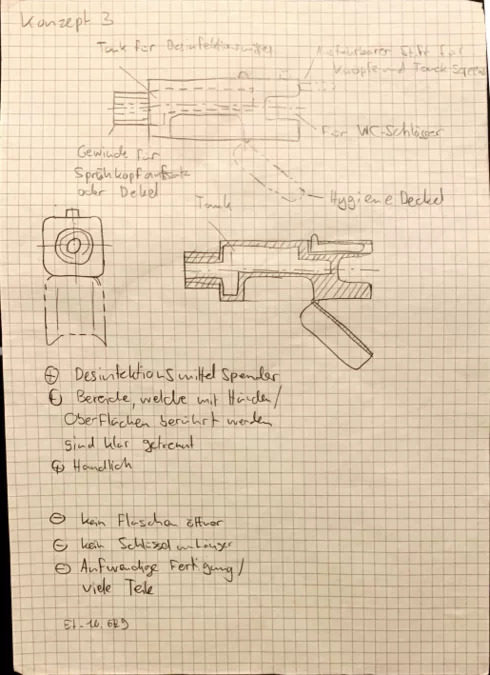 Konzept 3
Tank für Desinfektionsmittel
Stift für
Knöpfe und Touch Screen
Für WC-Schlösser
Gewinde für
Sprühkopfaufsatz
oder Deckel
Hygiene Deckel
Tank
⊕ Desinfektionsmittel Spender
⊕ Bereiche, welche mit Händen/
Oberflächen berührt werden
sind klar getrennt
⊕ Handlich
⊖ kein Flaschenöffner
⊖ kein Schlüsselanhänger
⊖ Aufwendige Fertigung/
viele Teile